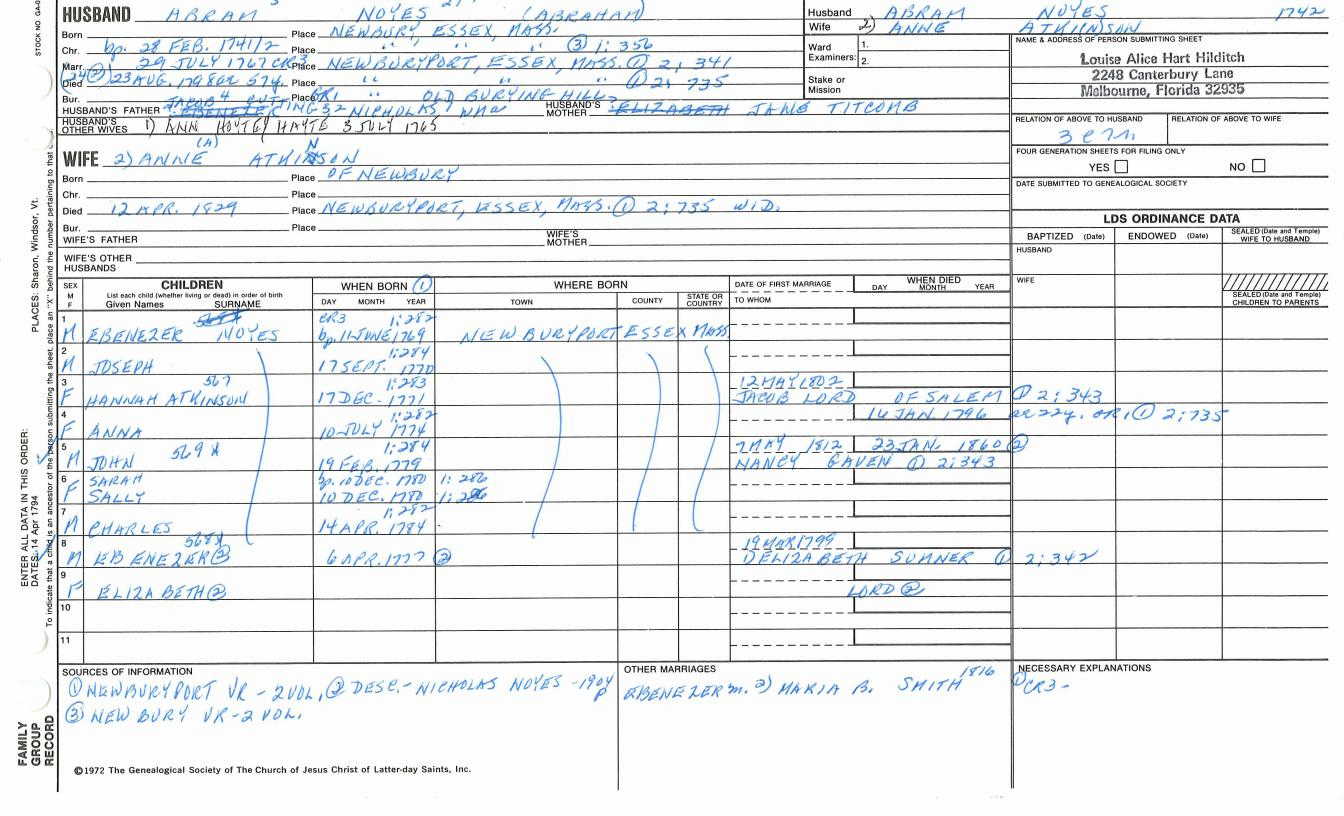 HUSBAND ABRAM NOYES (ABRAHAM)
Born Place NEWBURY, ESSEX, MASS.
Chr. bp. 28 FEB. 1741/2 Place " " " ③ 1: 356
Marr. 29 JULY 1767 CR3 Place NEWBURYPORT, ESSEX, MASS. ① 2; 341
Died 23 AUG. 1798 Place " " ① 2; 735
Bur. Place GR1 " OLD BURYING HILL
HUSBAND'S FATHER NICHOLAS HUSBAND'S MOTHER ELIZABETH JANE TITCOMB
HUSBAND'S OTHER WIVES 1) ANN HOYTE/HAYTE 3 JULY 1765
(A) N
WIFE 2) ANNE ATKINSON
Born Place OF NEWBURY
Chr. Place
Died 12 APR. 1829 Place NEWBURYPORT, ESSEX, MASS. ① 2;735 WID.
Bur. Place
WIFE'S FATHER WIFE'S MOTHER
WIFE'S OTHER HUSBANDS
Husband ABRAM NOYES 1742
Wife 2) ANNE ATKINSON
Ward Examiners: 1.
2.
Stake or Mission
NAME & ADDRESS OF PERSON SUBMITTING SHEET
Louise Alice Hart Hilditch
2248 Canterbury Lane
Melbourne, Florida 32935
RELATION OF ABOVE TO HUSBAND RELATION OF ABOVE TO WIFE
FOUR GENERATION SHEETS FOR FILING ONLY
YES NO
DATE SUBMITTED TO GENEALOGICAL SOCIETY
LDS ORDINANCE DATA
BAPTIZED (Date) ENDOWED (Date) SEALED (Date and Temple) WIFE TO HUSBAND
HUSBAND
WIFE
SEALED (Date and Temple) CHILDREN TO PARENTS
SEX M F
CHILDREN
List each child (whether living or dead) in order of birth
Given Names SURNAME
WHEN BORN ①
DAY MONTH YEAR
WHERE BORN
TOWN COUNTY STATE OR COUNTRY
DATE OF FIRST MARRIAGE
TO WHOM
WHEN DIED
DAY MONTH YEAR
1 CR3 1:282
M EBENEZER NOYES bp. 11 JUNE 1769 NEWBURYPORT ESSEX MASS
2 1:284
M JOSEPH 17 SEPT. 1770
3 567 1:283 12 MAY 1802
F HANNAH ATKINSON 17 DEC. 1771 JACOB LORD OF SALEM ① 2; 343
4 1:282 14 JAN 1796 ae 22y. GR1 ① 2;735
F ANNA 10 JULY 1774
5 569 X 1:284 7 MAY 1812 23 JAN. 1860 ②
M JOHN 19 FEB. 1779 NANCY CAVEN ① 2;343
6 SARAH bp. 10 DEC. 1780 1: 286
F SALLY 10 DEC. 1780 1: 286
7 1:282
M CHARLES 14 APR. 1784
8 568X 19 MAR 1799
M EBENEZER ② 6 APR. 1777 ② ELIZABETH SUMNER ① 2;342
9
F ELIZABETH ② LORD ②
10
11
SOURCES OF INFORMATION
① NEWBURYPORT VR - 2 VOL, ② DESC.- NICHOLAS NOYES -1904 P
③ NEWBURY VR - 2 VOL.
OTHER MARRIAGES
1816
EBENEZER m. 2) MARIA B. SMITH
NECESSARY EXPLANATIONS
CR3 -
©1972 The Genealogical Society of The Church of Jesus Christ of Latter-day Saints, Inc.
PLACES: Sharon, Windsor, Vt.
ENTER ALL DATA IN THIS ORDER:
DATES: 14 Apr 1794
To indicate that a child is an ancestor of the person submitting the sheet, place an "X" behind the number pertaining to that
FAMILY GROUP RECORD